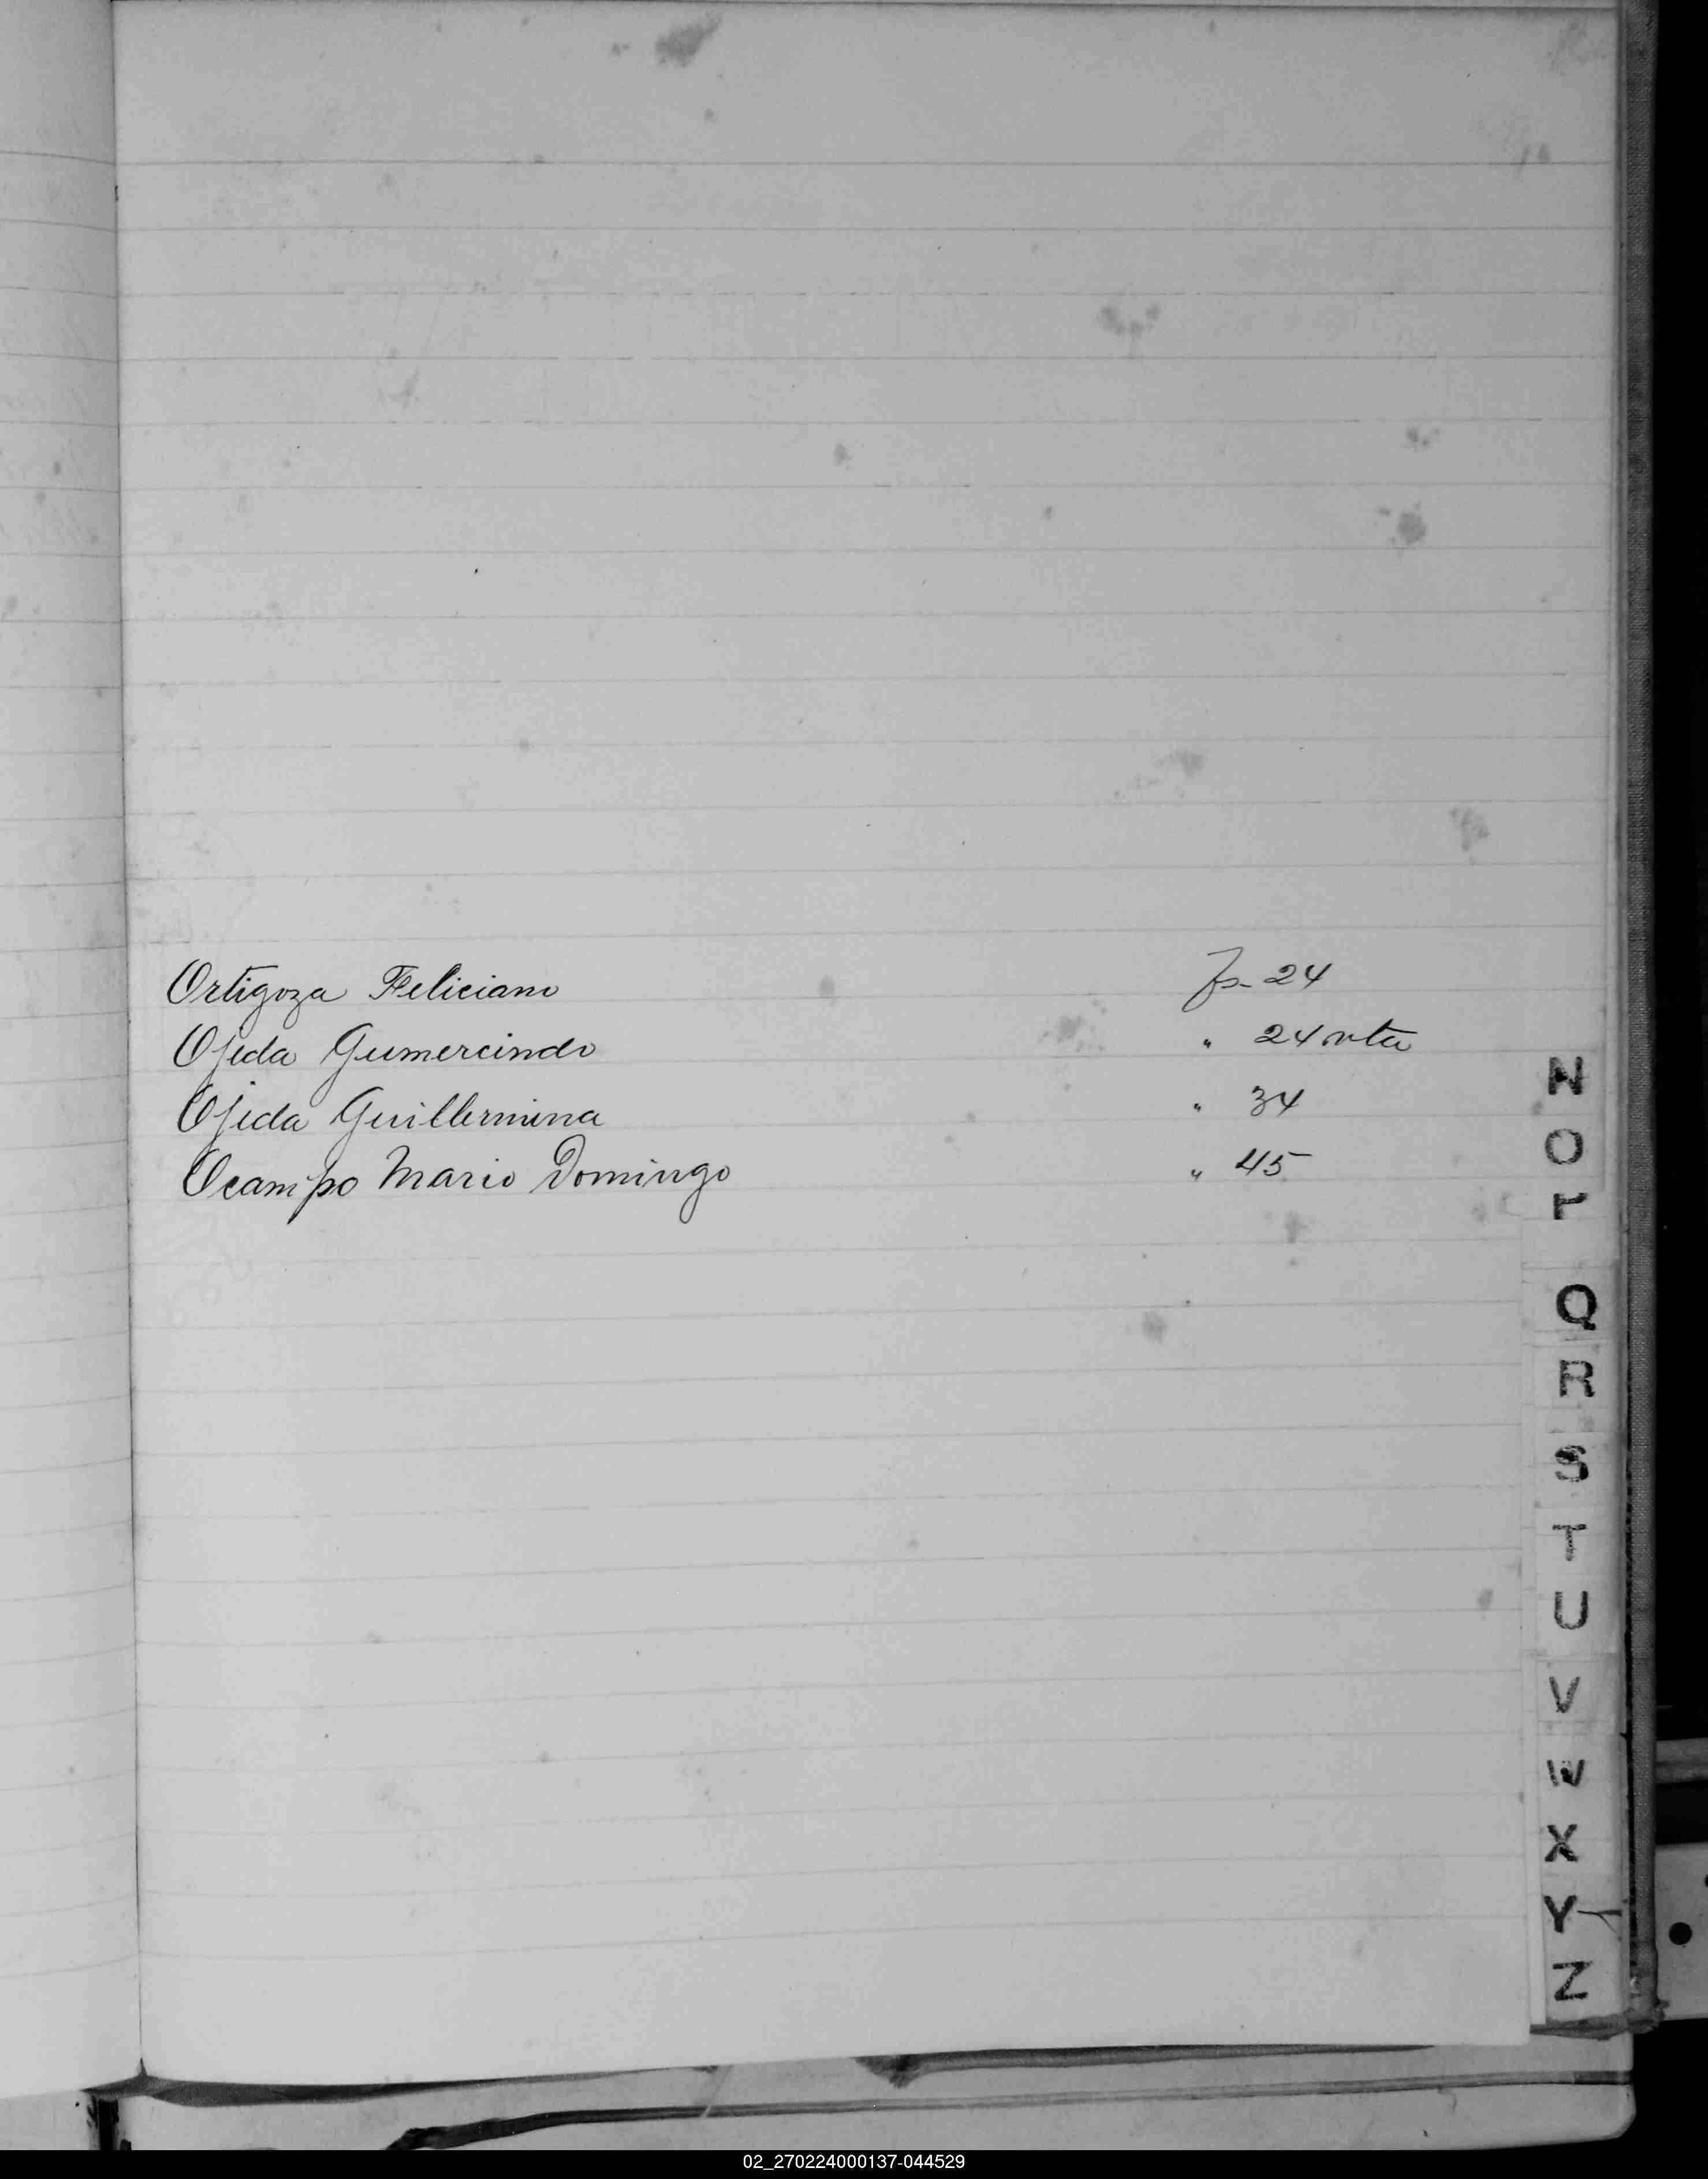 Ortigoza Feliciano fs- 24
Ojeda Gumercindo " 24 vta
Ojeda Guillermina " 34
Ocampo Mario Domingo " 45
N
O
P
Q
R
S
T
U
V
W
X
Y
Z
02_270224000137-044529